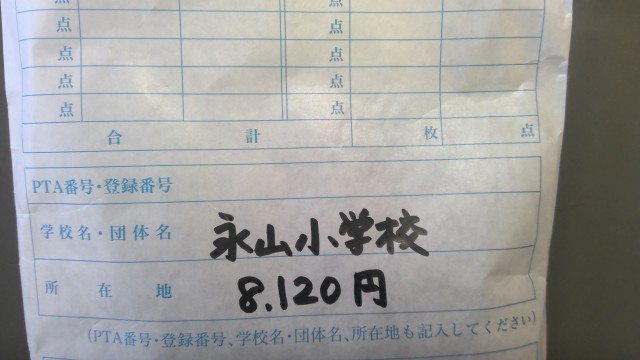 点 点
点 点
点 点
点 点
点 点
合計 枚 点
PTA番号・登録番号
学校名・団体名 永山小学校
所在地 8.120円
(PTA番号・登録番号、学校名・団体名、所在地も記入してください)